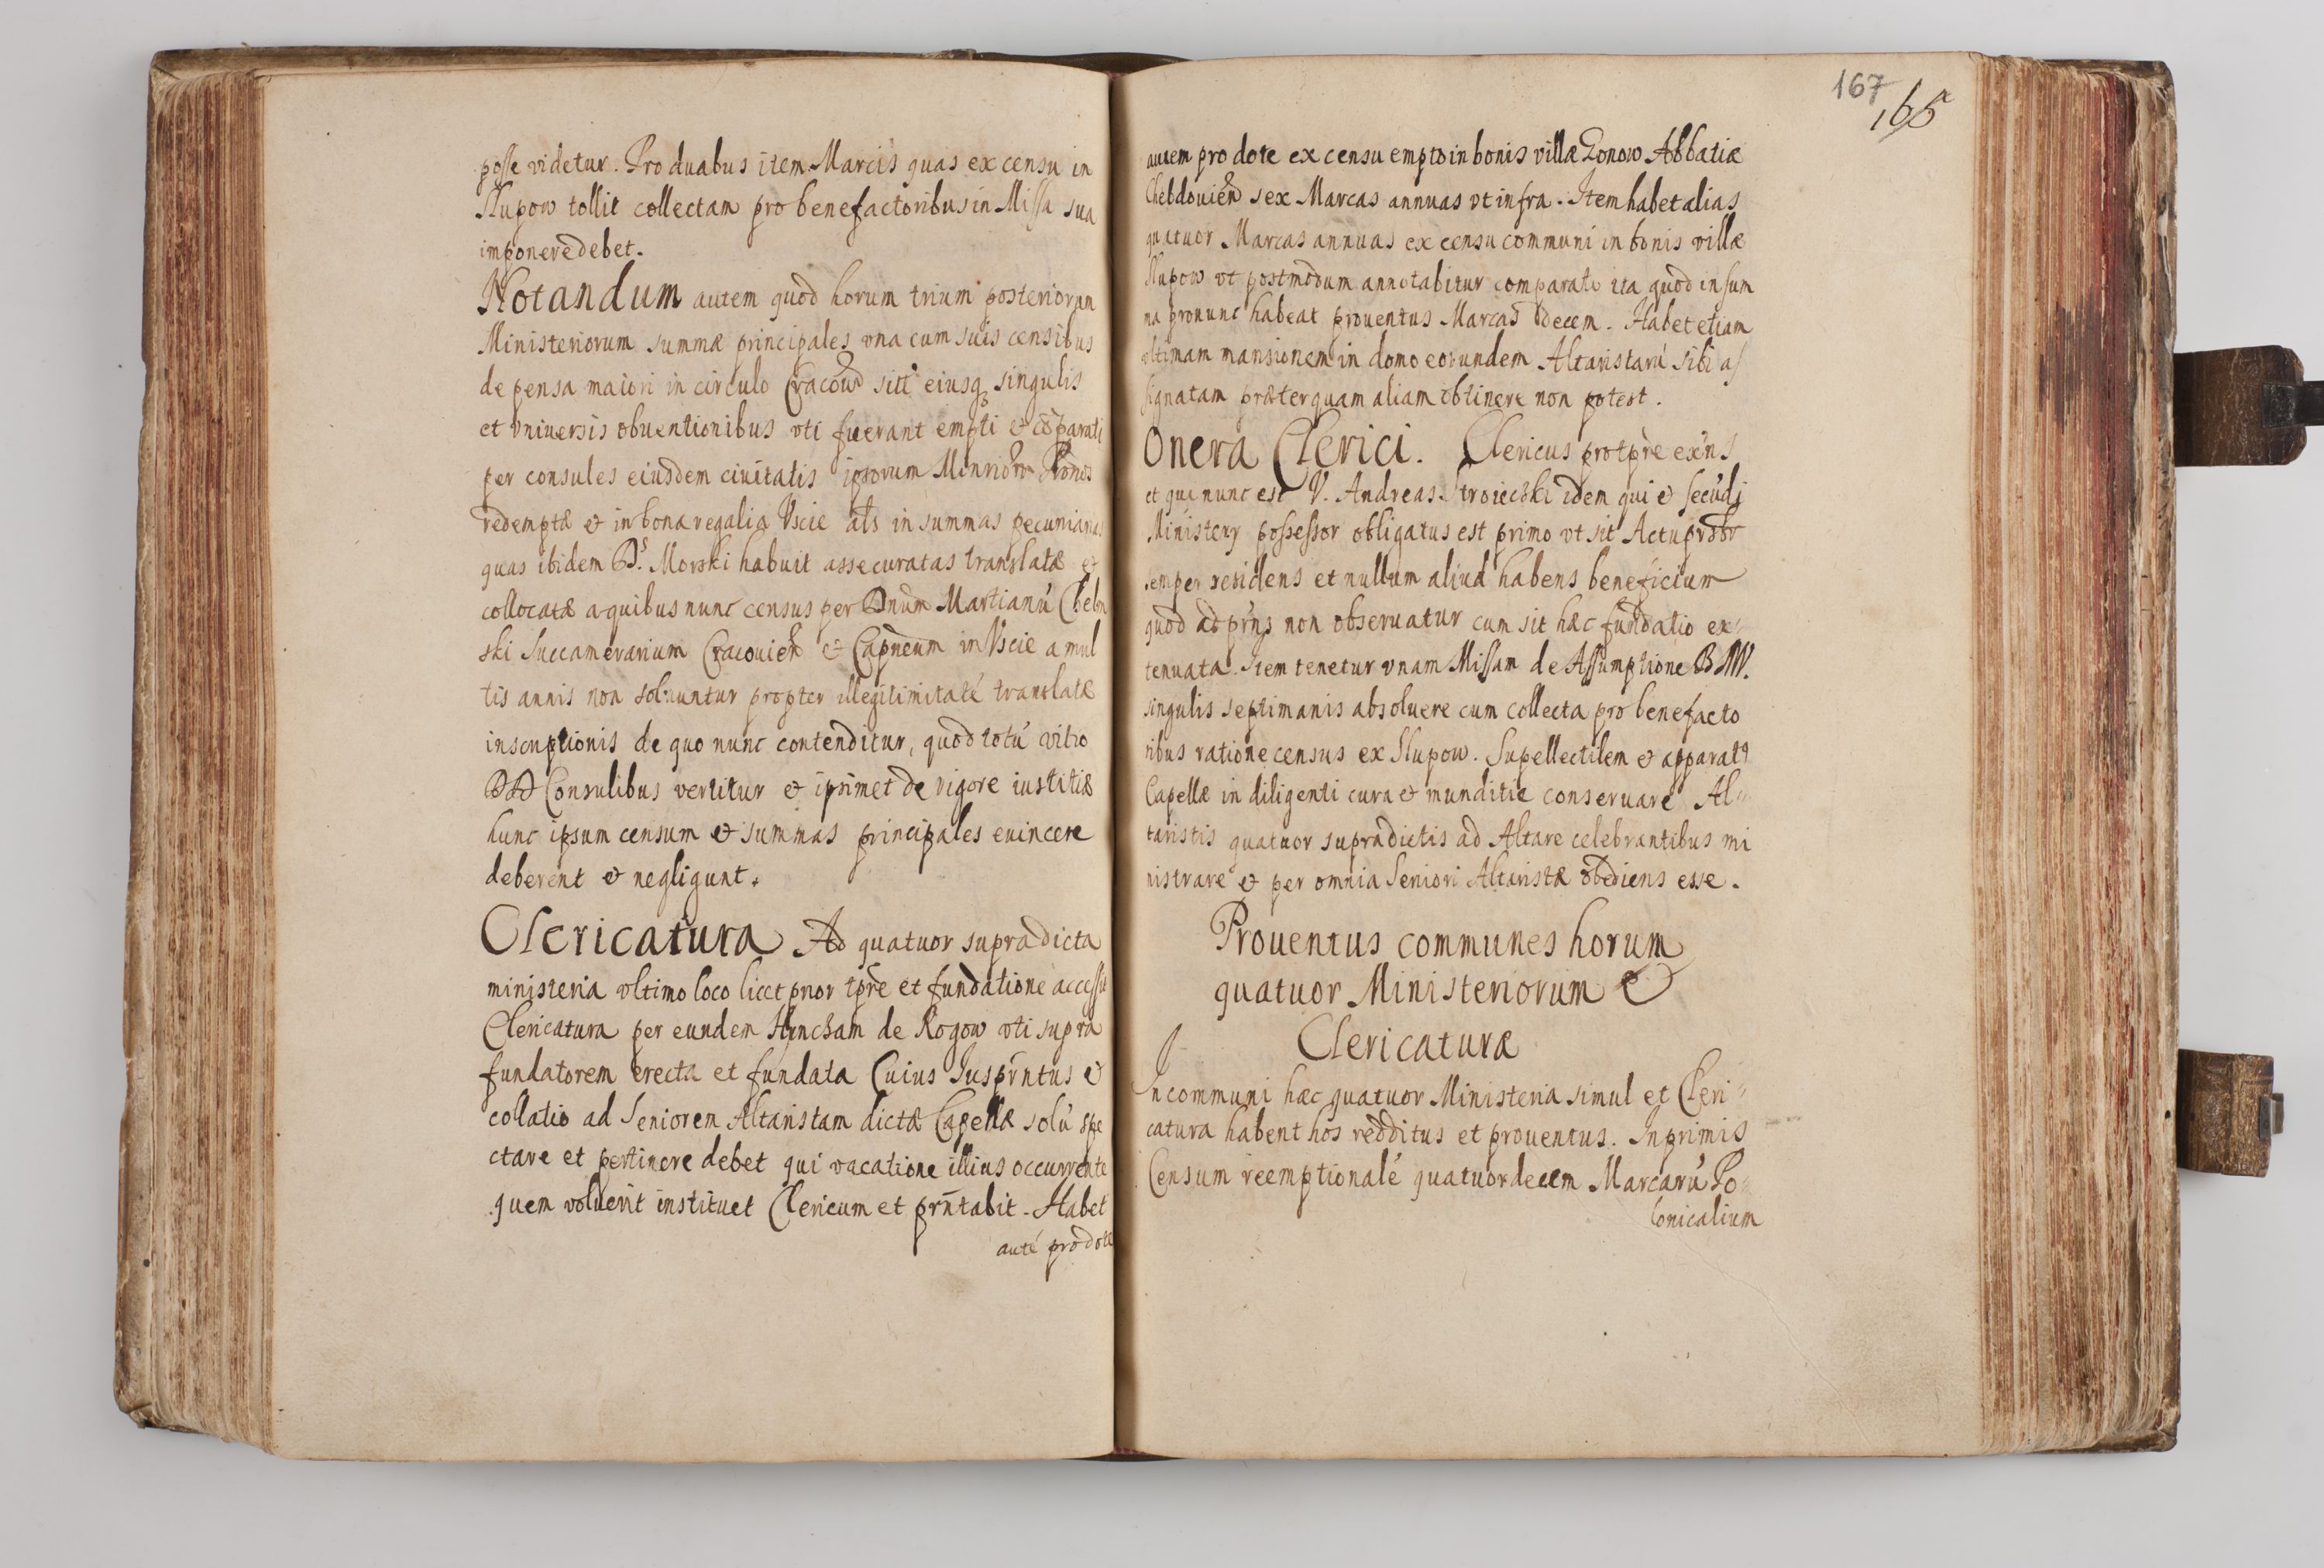 posse videtur. Pro duabus item Marcis quas ex censu in
Slupow tollit collectam pro benefactoribus in Missa sua
imponere debet.
Notandum autem quod horum trium posteriorum
Ministeriorum summæ principales vna cum suis censibus
de pensa maiori in circulo Cracoui sitt eiusq singulis
et vniuersis obuentionibus vti fuerant empti & cõparati
per consules eiusdem ciuitatis ipsorum
redemptæ & in bona regalia Vscie als in summas pecuniarias
quas ibidem Ds. Morski habuit assecuratas translatæ &
collocatæ a quibus nunc census per Dnum Martianú Chelm
ski Succamerarium Cracouien & Capneum in Vscie a mul
tis annis non soluuntur propter illegitimitaté translatæ
inscriptionis de quo nunc contenditur, quod totú vitio
DD Consulibus vertitur & ipsimet de rigore iustitiæ
hunc ipsum censum & summas principales euincere
deberent & negligunt.
Clericatura Ad quatuor supradicta
ministeria vltimo loco licet prior tpre et fundatione accessit
Clericatura per eundem Hincham de Rogow vti supra
fundatorem erecta et fundata Cuius Jusprntus &
collatio ad Seniorem Altaristam dictæ Capellæ solú spe
ctare et pertinere debet qui vacatione illius occurrente
quem voluerit instituet Clericum et prntabit. Habet
auté pro dote
167
165
autem pro dote ex censu empto in bonis villæ Zonow Abbatiæ
Chebdouien sex Marcas annuas vt infra. Item habet alias
quatuor Marcas annuas ex censu communi in bonis villæ
Slupow vt postmodum annotabitur comparato ita quod in sum
ma pro nunc habeat prouentus Marcas decem. Habet etiam
vltimam mansionem in domo eorundem Altaristarú sibi as
signatam præterquam aliam obtinere non potest.
Onera Clerici. Clericus protpre exñs
et qui nunc est V. Andreas Stroiecski idem qui & Secúdi
Ministery possessor obligatus est primo vt sit Actu prsbr
semper residens et nullum aliud habens beneficium
quod ad prns non obseruatur cum sit hæc fundatio ex-
tenuata. Item tenetur vnam Missam de Assumptione BMV.
singulis septimanis absoluere cum collecta pro benefacto
ribus ratione census ex Slupow. Supellectilem & apparatq
Capellæ in diligenti cura & munditie conseruare Al-
taristis quatuor supradictis ad Altare celebrantibus mi
nistrare & per omnia Seniori Altaristæ obediens esse.
Prouentus communes horum
quatuor Ministeriorum &
Clericaturæ
In communi hæc quatuor Ministeria simul et Cleri-
catura habent hos redditus et prouentus. Inprimis
Censum reemptionalé quatuordecem Marcarú Po
lonicalium